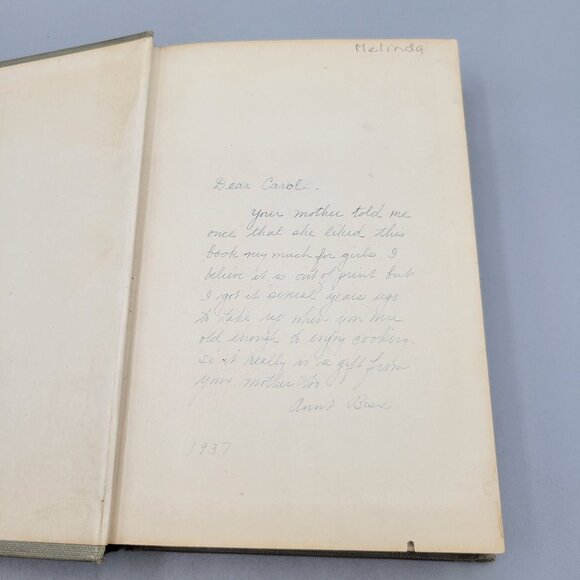 Melinda
Dear Carol.
Your mother told me
once that she liked this
book very much for girls. I
believe it is out of print but
I got it several years ago
to take up when you were
old enough to enjoy cooking.
So it really is a gift from
your mother too
Aunt Bess
1937